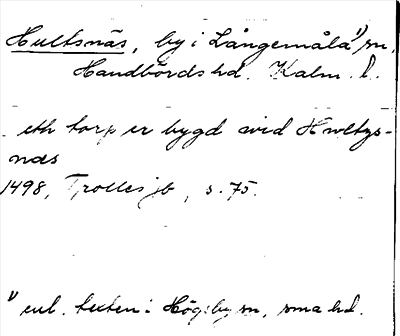 Hultsnäs, by i Långemåla¹⁾ sn,
Handbörds hd. Kalm. l.
eth torp er bygd wid Hwltzs-
næs
1498, Trolles jb, s. 75.
¹⁾ enl. texten: Högsby sn, sma hd.